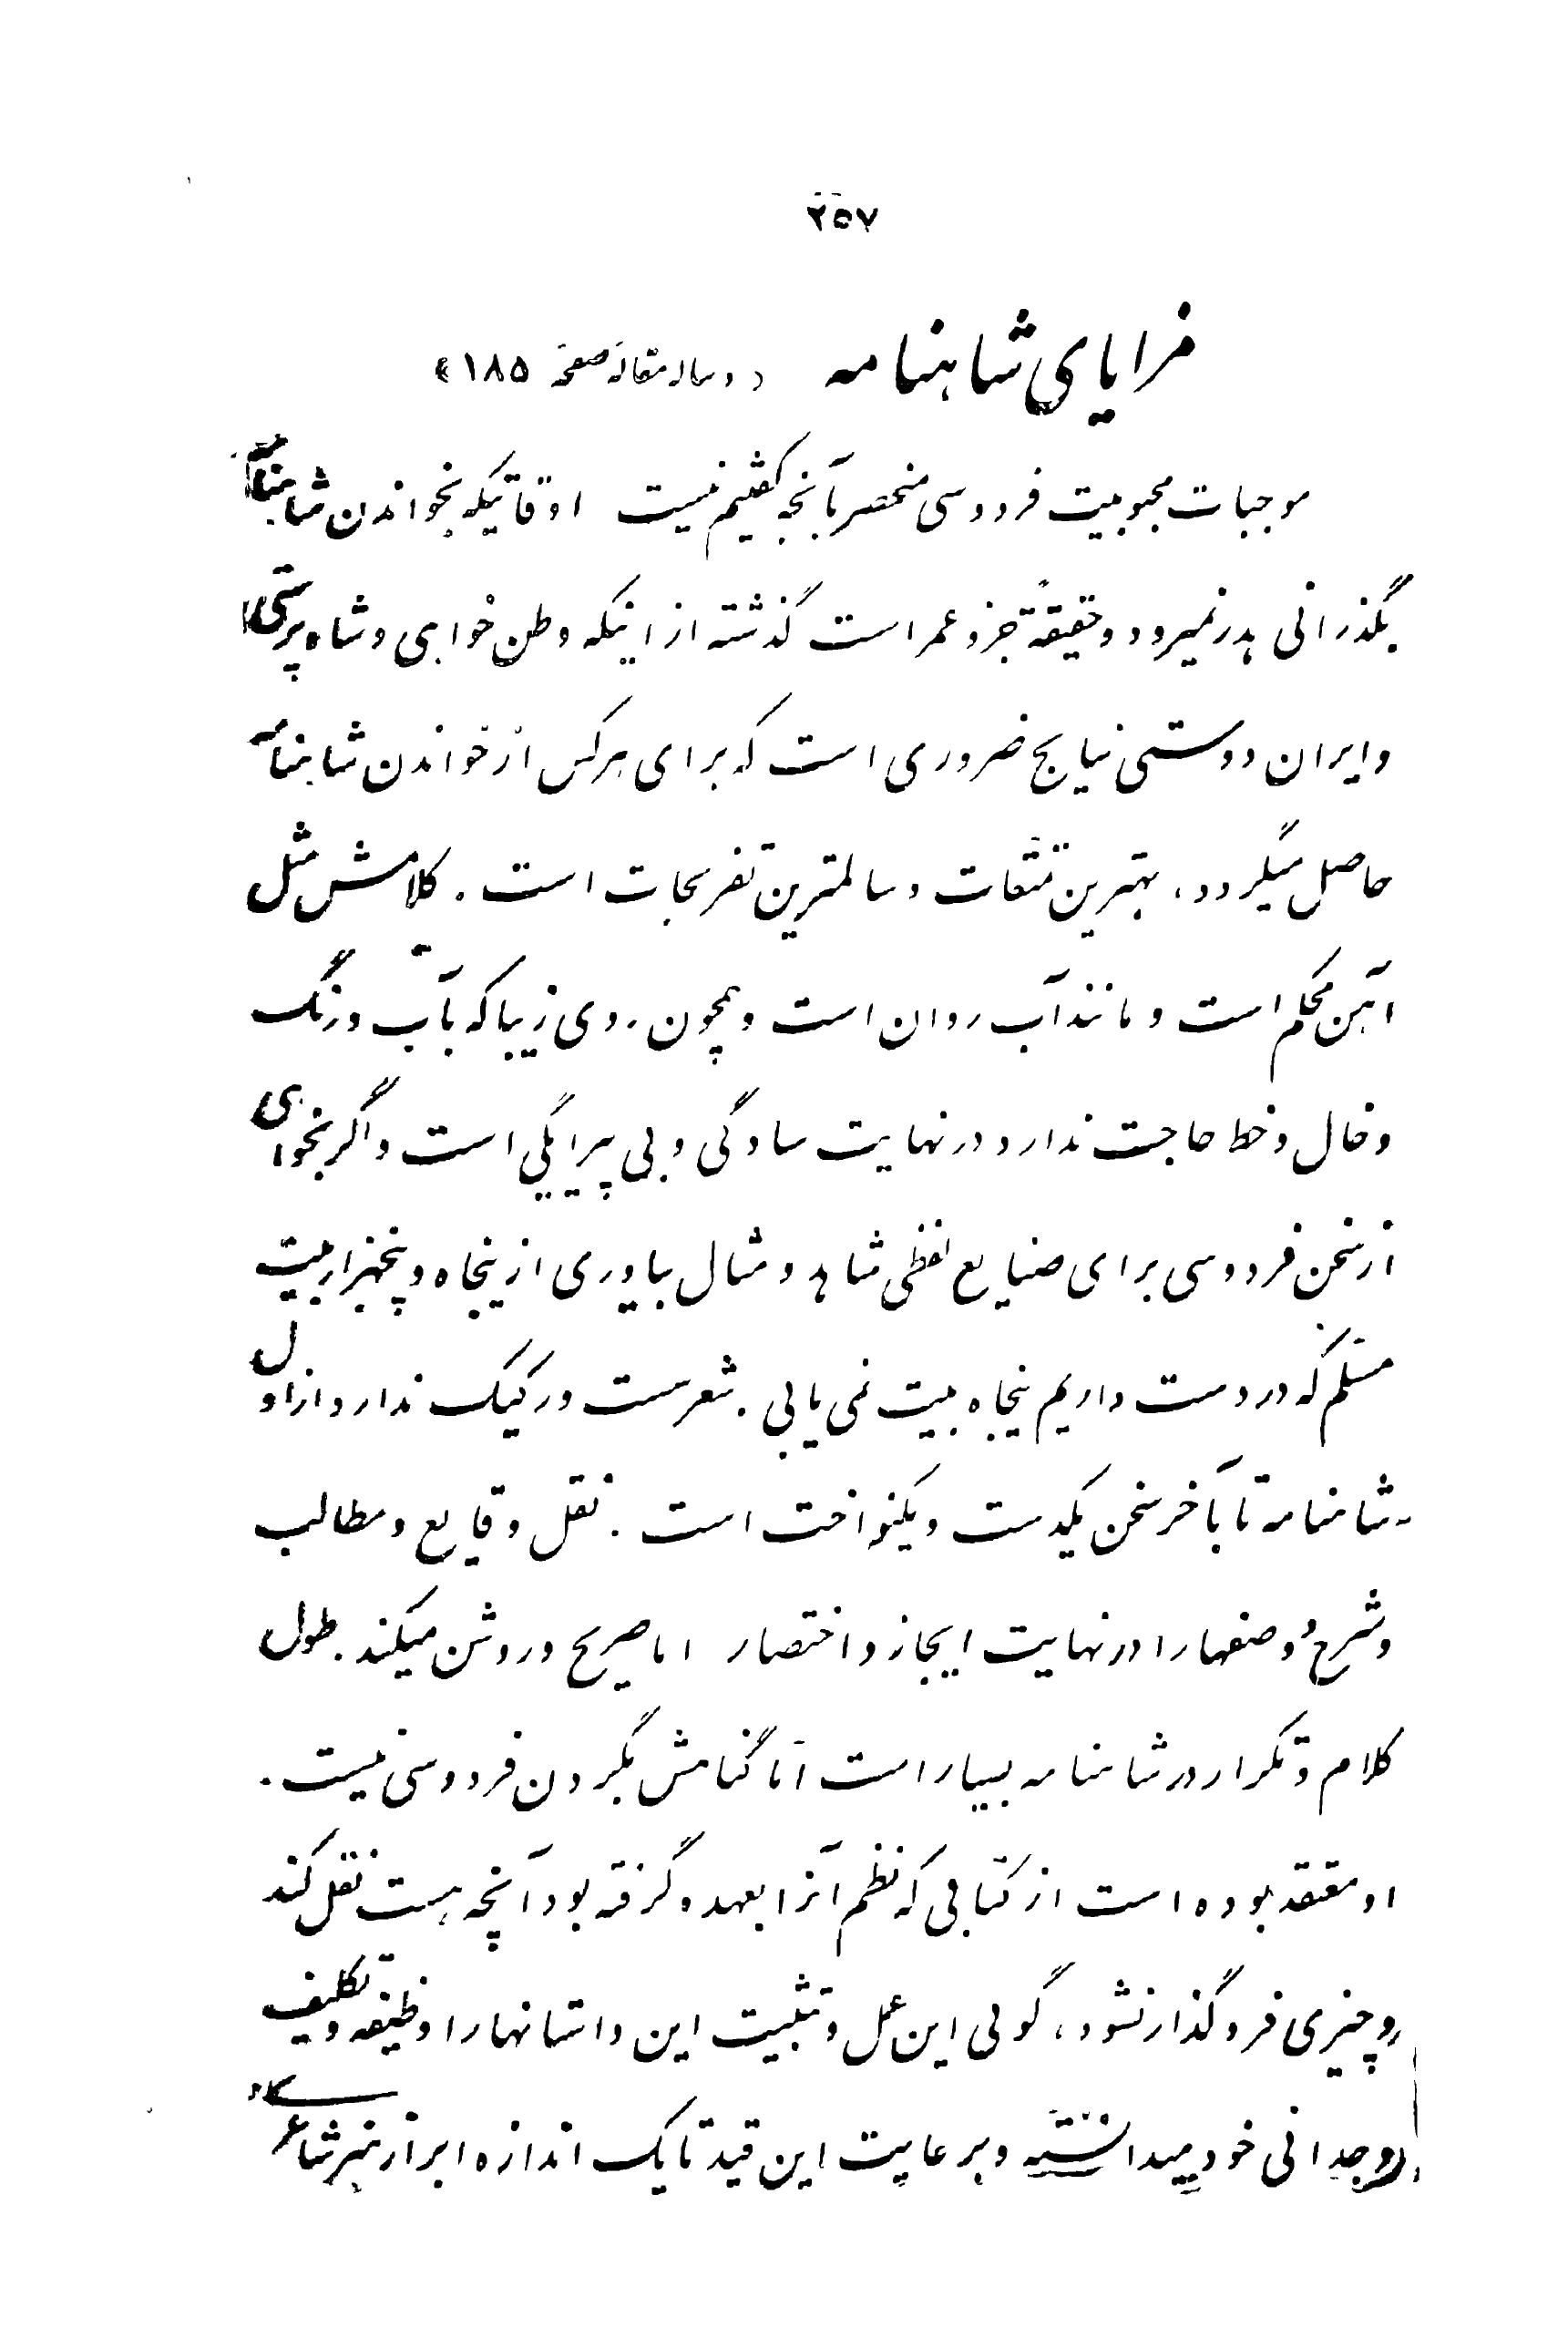 ۲۵۷
مزایای شاهنامه (دنباله مقاله صفحه ۱۸۵)
موجبات محبوبیت فردوسی منحصر بآنچه گفتیم نیست اوقاتیکه بخواندن شاهنامه
بگذرانی بهدر نمیرود و حقیقةً جزو عمر است گذشته از اینکه وطن خواهی و شاه پرستی
و ایران دوستی نتایج ضروری است که برای هرکس از خواندن شاهنامه
حاصل میگردد، بهترین تمتّعات و سالمترین تفریحات است. کلامش مثل
آهن محکم است و مانند آب روان است و همچون روی زیبا که بآب و رنگ
و خال و خط حاجت ندارد در نهایت سادگی و بی پیرایگی است و اگر بخواهی
از سخن فردوسی برای صنایع لفظی شاهد و مثال بیاوری از پنجاه و پنجهزار بیت
مسلّم که در دست داریم پنجاه بیت نمی یابی. شعر سست و رکیک ندارد و از اول
شاهنامه تا بآخر سخن یکدست و یکنواخت است. نقل وقایع و مطالب
و شرح و وصفها را در نهایت ایجاز و اختصار اما صریح و روشن میکند. طول
کلام و تکرار در شاهنامه بسیار است امّا گناهش بگردن فردوسی نیست.
او معتقد بوده است از کتابی که نظم آنرا بعهده گرفته بود آنچه هست نقل کند
و چیزی فروگذار نشود، گوئی این عمل و تثبیت این داستانها را وظیفه و تکلیف
وجدانی خود میدانسته و برعایت این قید تا یک اندازه ابراز هنر شاعری